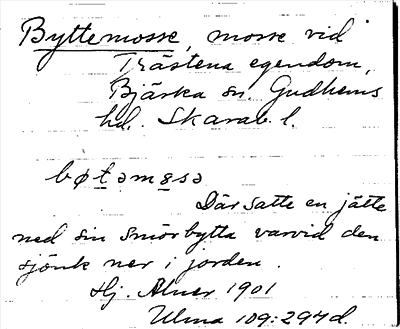 Byttemosse, mosse vid
Trästena egendom,
Bjärka sn. Gudhems
hd. Skarab. l.
bøtəmɵsə
Där satte en jätte
ned sin smörbytta varvid den
sjönk ner i jorden.
Hj. Alner 1901
Ulma 109:297 d.